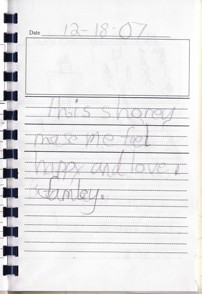 Date 12-18-07
this shorey
mase me feel
happy and love
family.